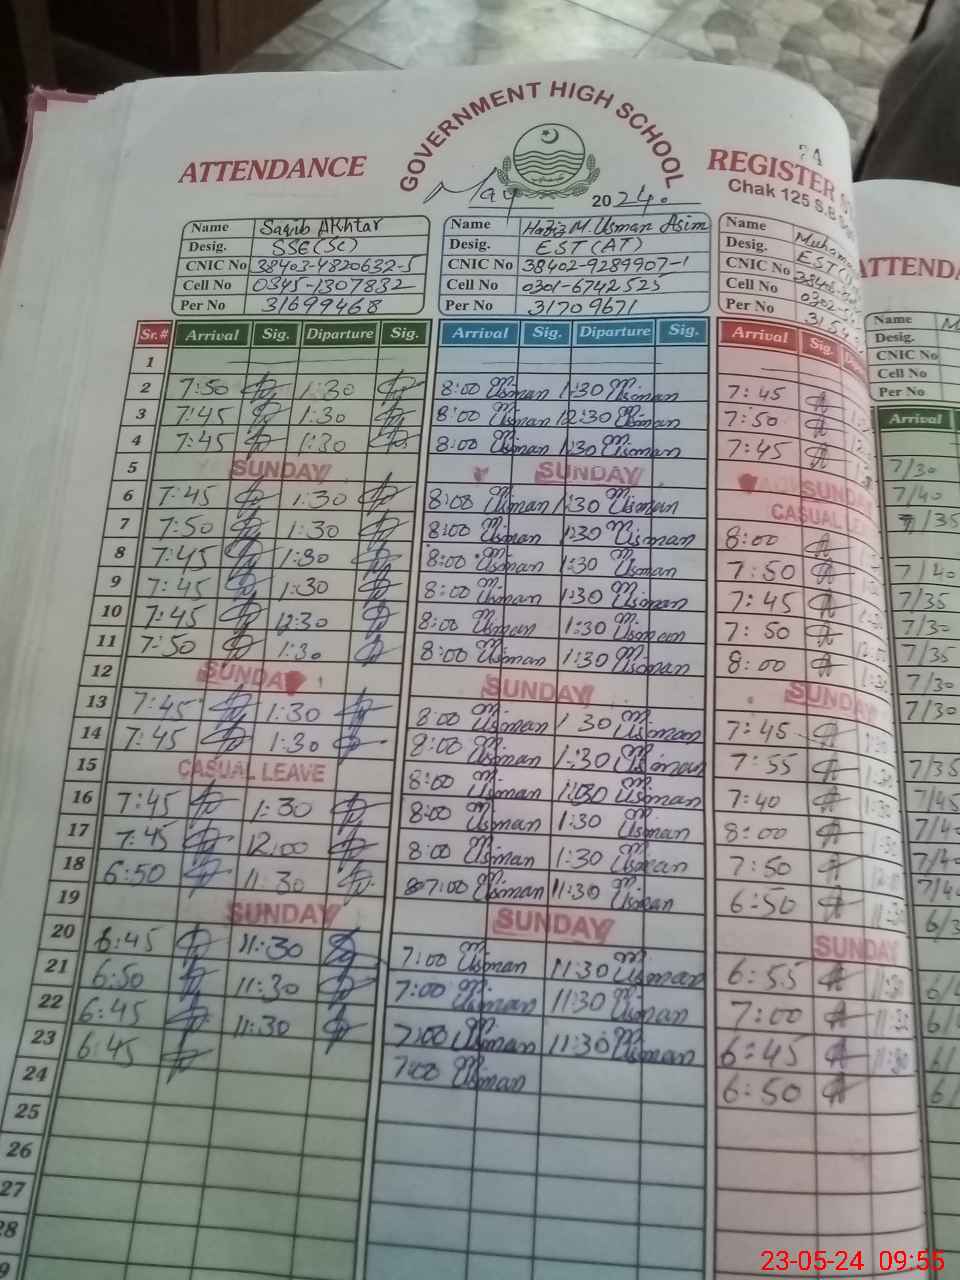 GOVERNMENT HIGH SCHOOL
ATTENDANCE REGISTER
May 2024.
Chak 125 S.B
Name Saqib Akhtar
Desig. SSE(Sc)
CNIC No 38403-4820632-5
Cell No 0345-1307832
Per No 31699468
Name Hafiz M. Usman Asim
Desig. EST(AT)
CNIC No 38402-9289907-1
Cell No 0301-6742525
Per No 31709671
Name
Desig.
CNIC No
Cell No
Per No
ATTENDA
Name
Desig.
CNIC No
Cell No
Per No
Sr.# Arrival Sig. Diparture Sig. Arrival Sig. Diparture Sig. Arrival Sig. Arrival
1
2 7:50 1:30 8:00 Usman 1:30 Usman 7:45
3 7:45 1:30 8:00 Usman 12:30 Usman 7:50
4 7:45 1:30 8:00 Usman 1:30 Usman 7:45
5 SUNDAY SUNDAY SUNDAY 7/30
6 7:45 1:30 8:00 Usman 1:30 Usman CASUAL LEAVE 7/40
7 7:50 1:30 8:00 Usman 1:30 Usman 8:00 7/35
8 7:45 1:30 8:00 Usman 1:30 Usman 7:50 7/40
9 7:45 1:30 8:00 Usman 1:30 Usman 7:45 7/35
10 7:45 12:30 8:00 Usman 1:30 Usman 7:50 7/30
11 7:50 1:30 8:00 Usman 1:30 Usman 8:00 7/35
12 SUNDAY SUNDAY SUNDAY 7/30
13 7:45 1:30 8:00 Usman 1:30 Usman 7:45 7/30
14 7:45 1:30 8:00 Usman 1:30 Usman 7:55
15 CASUAL LEAVE 8:00 Usman 1:30 Usman 7:40 7/35
16 7:45 1:30 8:00 Usman 1:30 Usman 8:00 7/45
17 7:45 12:00 8:00 Usman 1:30 Usman 7:50
18 6:50 11:30 7:00 Usman 11:30 Usman 6:50
19 SUNDAY SUNDAY SUNDAY
20 6:45 11:30 7:00 Usman 11:30 Usman 6:55 11:30
21 6:50 11:30 7:00 Usman 11:30 Usman 7:00 11:30
22 6:45 11:30 7:00 Usman 11:30 Usman 6:45 11:30
23 6:45 7:00 Usman 6:50
24
25
26
27
28
23-05-24 09:55